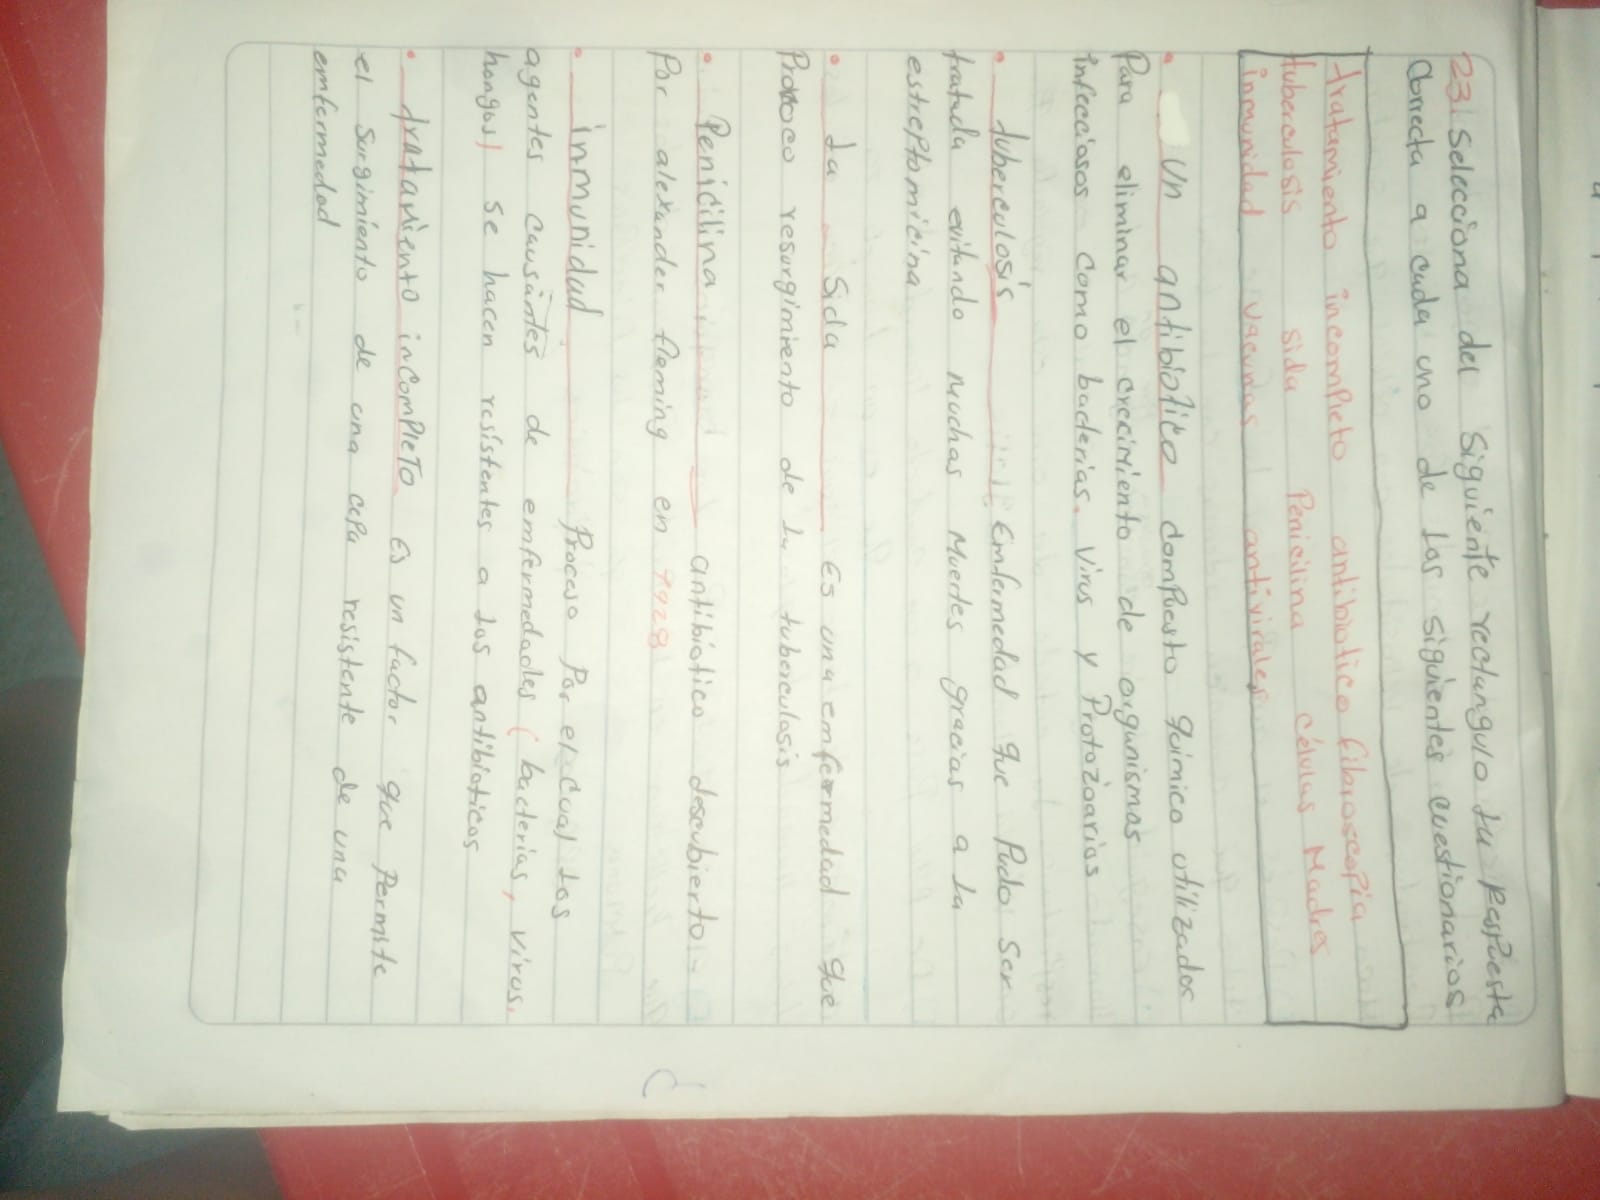 23) Selecciona del siguiente rectangulo tu respuesta
correcta a cada uno de los siguientes cuestionarios
tratamiento incompleto antibiotico fibroscopia
tuberculosis sida Penicilina células Madres
inmunidad vacunas antivirales
• Un antibiotico compuesto químico utilizados
Para eliminar el crecimiento de organismos
infecciosos como bacterias. Virus y Protozoarios
• tuberculosis Emfermedad que Pudo ser
tratada evitando muchas Muertes gracias a la
estreptomicina
• La Sida Es una emfermedad que
Provoco resurgimiento de la tuberculosis
• Penicilina antibiótico descubierto
Por alexander fleming en 1928
• inmunidad Proceso Por el cual los
agentes causantes de enfermedades (bacterias, virus,
hongos) se hacen resistentes a los antibioticos
• tratamiento incompleto Es un factor que Permite
el surgimiento de una cepa resistente de una
emfermedad